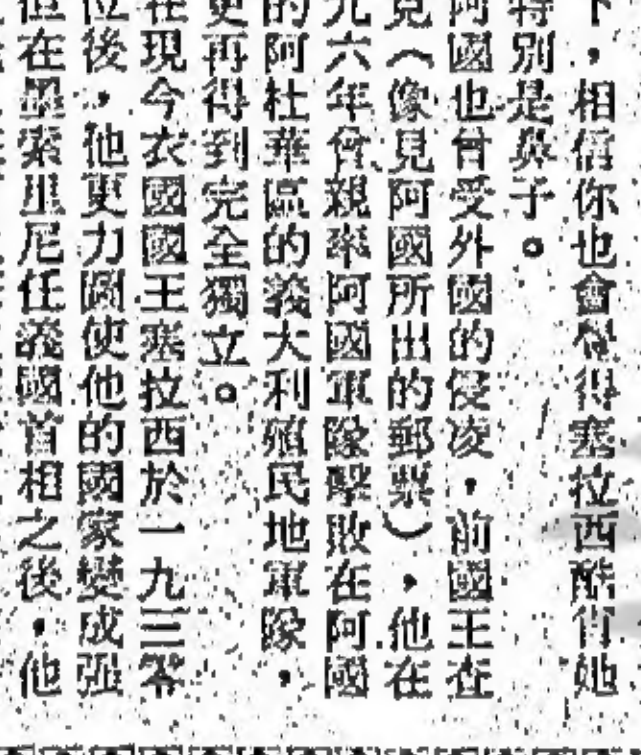 下,相信你也會覺得塞拉西酷肖她
特別是鼻子。
阿國也曾受外國的侵凌,前國王在
見(像見阿國所出的郵票),他在
九六年曾親率阿國軍隊擊敗在阿國
的阿杜華區的義大利殖民地軍隊,
更再得到完全獨立。
在現今衣國國王塞拉西於一九三零
位後,他更力圖使他的國家變成强
但在墨索里尼任義國首相之後,他